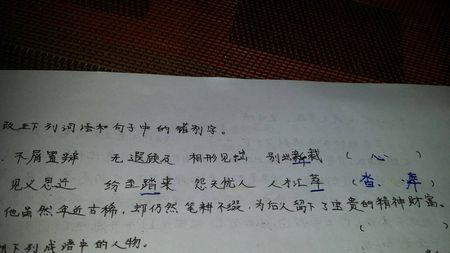 改正下列词语和句子中的错别字。
不屑置辩 无遐顾及 相形见拙 别出新裁 ( 心 )
见义思迁 纷至踏来 怨天忧人 人才汇萃 ( 沓、 )
他虽然年近古稀,却仍然笔耕不缀,为后人留下了宝贵的精神财富。
( )
下列成语中的人物。